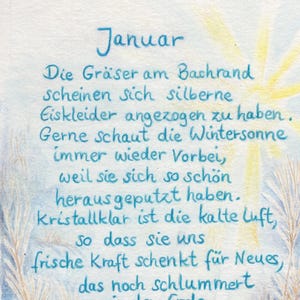 Januar
Die Gräser am Bachrand
scheinen sich silberne
Eiskleider angezogen zu haben.
Gerne schaut die Wintersonne
immer wieder Vorbei,
weil sie sich so schön
herausgeputzt haben.
Kristallklar ist die kalte Luft,
so dass sie uns
frische Kraft schenkt für Neues,
das noch schlummert